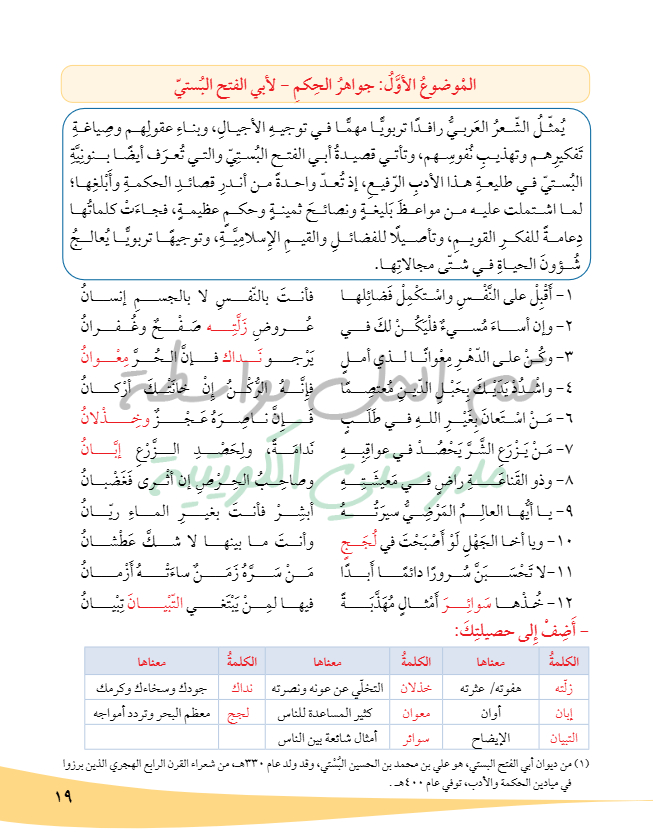 الموضوعُ الأوَّلُ: جواهرُ الحِكمِ – لأبي الفتح البُستيّ
يُمثّلُ الشّعرُ العَربيُّ رافدًا تربويًّا مهمًّا في توجيهِ الأجيالِ، وبناءِ عقولِهم وصِياغةِ
تَفكيرِهم وتهذيبِ نُفوسِهم، وتأتي قصيدةُ أبي الفتحِ البُستيّ والتي تُعرَف أيضًا بـنونِيَّةِ
البُستيّ في طليعةِ هذا الأدبِ الرّفيعِ، إذ تُعدّ واحدةً من أندرِ قصائدِ الحكمةِ وأَبْلغِها؛
لما اشتملت عليه من مواعظَ بَليغةٍ ونصائحَ ثمينةٍ وحكمٍ عظيمةٍ، فجاءَتْ كلماتُها
دِعامةً للفكرِ القويمِ، وتأصيلًا للفضائلِ والقيمِ الإسلاميَّةِ، وتوجيهًا تربويًّا يُعالجُ
شُؤونَ الحياةِ في شتّى مجالاتِها.
١- أَقْبِلْ على النَّفْسِ واسْتَكْمِلْ فَضائِلَها فأنتَ بالنّفسِ لا بالجسمِ إنسانُ
٢- وإن أساءَ مُسيءٌ فلْيَكُنْ لكَ في عُروضِ زَلَّتِه صَفْحٌ وغُفرانُ
٣- وكُنْ على الدّهْرِ مِعْوانًا لذي أملٍ يَرْجو نَداك فإنَّ الحُرَّ مِعْوانُ
٤- واشْدُدْ يَدَيْكَ بِحَبْلِ الدّينِ مُعْتصِمًا فإنَّهُ الرُّكنُ إنْ خانَتْكَ أرْكانُ
٦- مَنْ اسْتَعانَ بِغَيْرِ اللهِ في طَلَبٍ فَإنَّ ناصِرَهُ عَجْزٌ وخِذْلانُ
٧- مَنْ يَزْرَعِ الشَّرَّ يَحْصُدْ في عواقِبِهِ نَدامَةً، ولِحَصْدِ الزَّرْعِ إبَّانُ
٨- وذو القَناعَةِ راضٍ في مَعِيشَتِهِ وصاحِبُ الحِرْصِ إن أثْرى فَغَضْبانُ
٩- يا أيُّها العالِمُ المَرْضِيُّ سيرَتُهُ أبشِرْ فأنتَ بغيرِ الماءِ ريّانُ
١٠- ويا أخا الجَهْلِ لَوْ أَصْبَحْتَ في لُجَجٍ وأنتَ ما بينها لا شكَّ عَطْشانُ
١١- لا تَحْسَبَنَّ سُرورًا دائمًا أبدًا مَنْ سَرَّهُ زَمَنٌ ساءَتْهُ أزْمانُ
١٢- خُذْها سَوائِرَ أمْثالٍ مُهَذَّبَةً فيها لمِنْ يَبْتَغي التّبْيانَ تِبْيانُ
– أَضِفْ إلى حصيلتِكَ:
الكلمةُ معناها الكلمةُ معناها الكلمةُ معناها
زلّته هفوته/ عثرته خذلان التخلّي عن عونه ونصرته نداك جودك وسخاءك وكرمك
إبان أوان معوان كثير المساعدة للناس لجج معظم البحر وتردد أمواجه
التبيان الإيضاح سوائر أمثال شائعة بين الناس
(١) من ديوان أبي الفتح البستي، هو علي بن محمد بن الحسين البُسْتي، وقد ولد عام ٣٣٠هـ، من شعراء القرن الرابع الهجري الذين برزوا
في ميادين الحكمة والأدب، توفي عام ٤٠٠هـ.
١٩
تم الحل بواسطة
مدرستي الكويتية